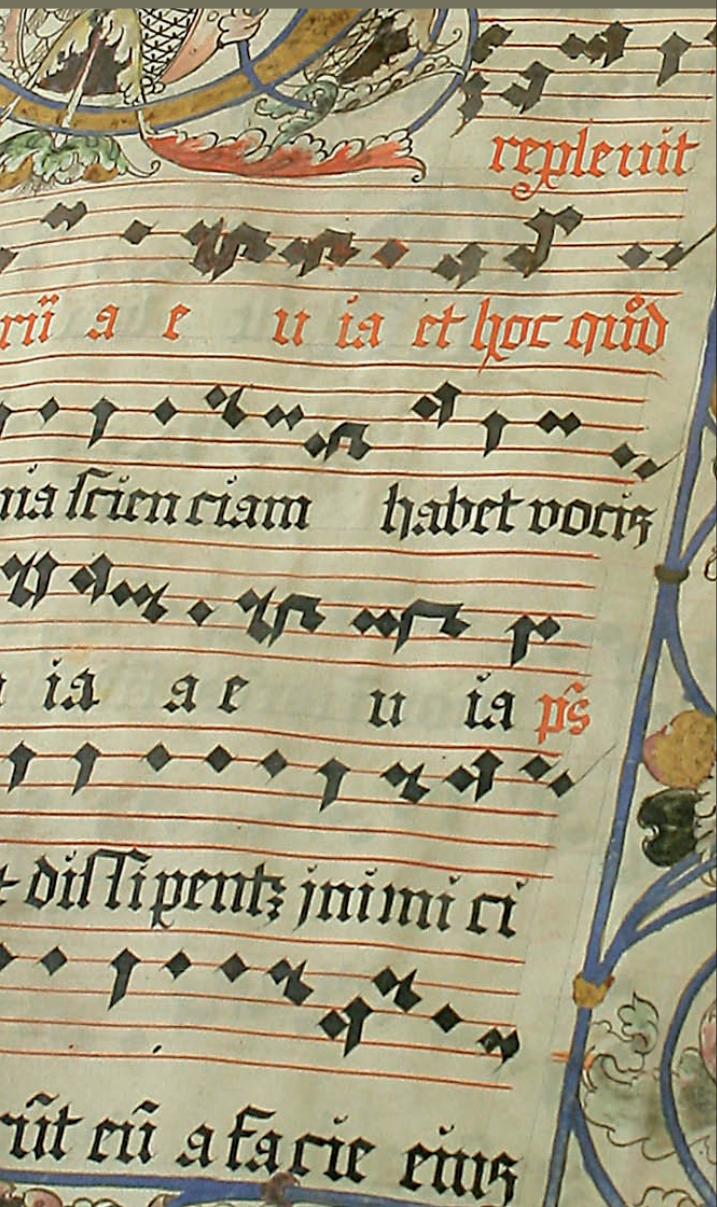 repleuit
rū a e u ia et hoc quod
nia scien ciam habet vocis
ia a e u ia ps
dissipentꝫ jnimi ci
rūt eū a facie eius